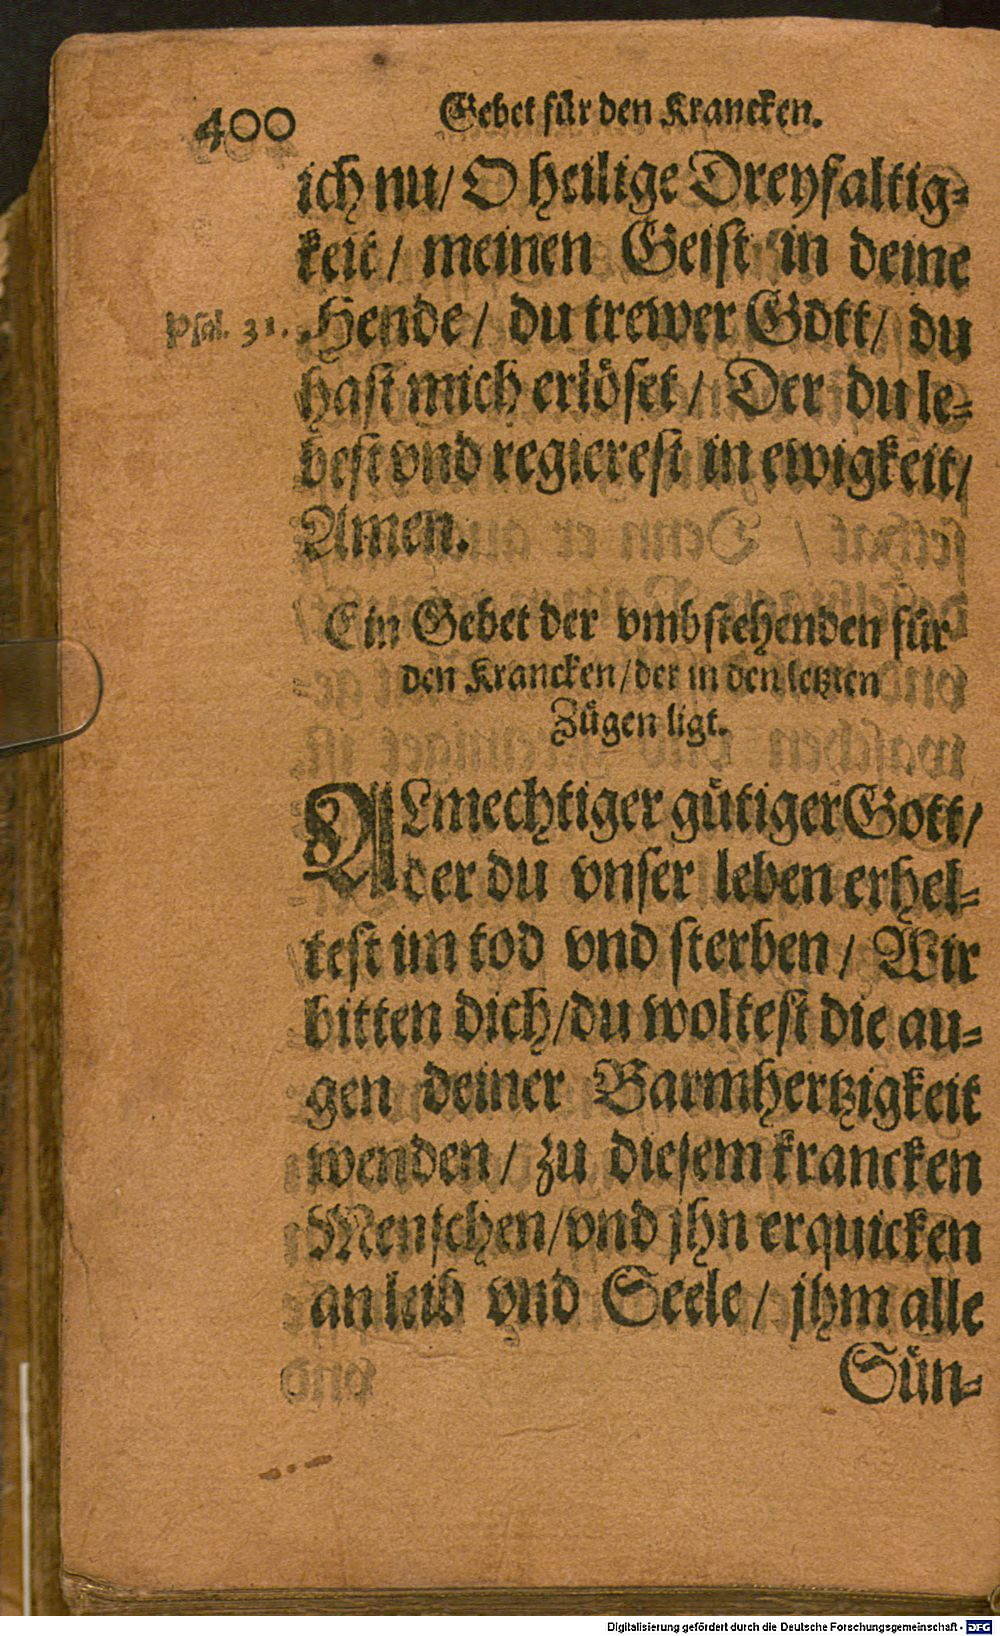 400
Gebet für den Krancken.
ich nu/ O heilige Dreyfaltig-
keit/ meinen Geist in deine
Psal. 31.
Hende/ du trewer Gott/ du
hast mich erlöset/ Der du le-
best vnd regierest in ewigkeit/
Amen.
Ein Gebet der vmbstehenden für
den Krancken/der in den letzten
Zügen ligt.
ALmechtiger gütiger Gott/
der du vnser leben erhel-
test im tod vnd sterben/ Wir
bitten dich/du woltest die au-
gen deiner Barmhertzigkeit
wenden/ zu diesem krancken
Menschen/vnd jhn erquicken
an leib vnd Seele/ jhm alle
Sün-
Digitalisierung gefördert durch die Deutsche Forschungsgemeinschaft - DFG